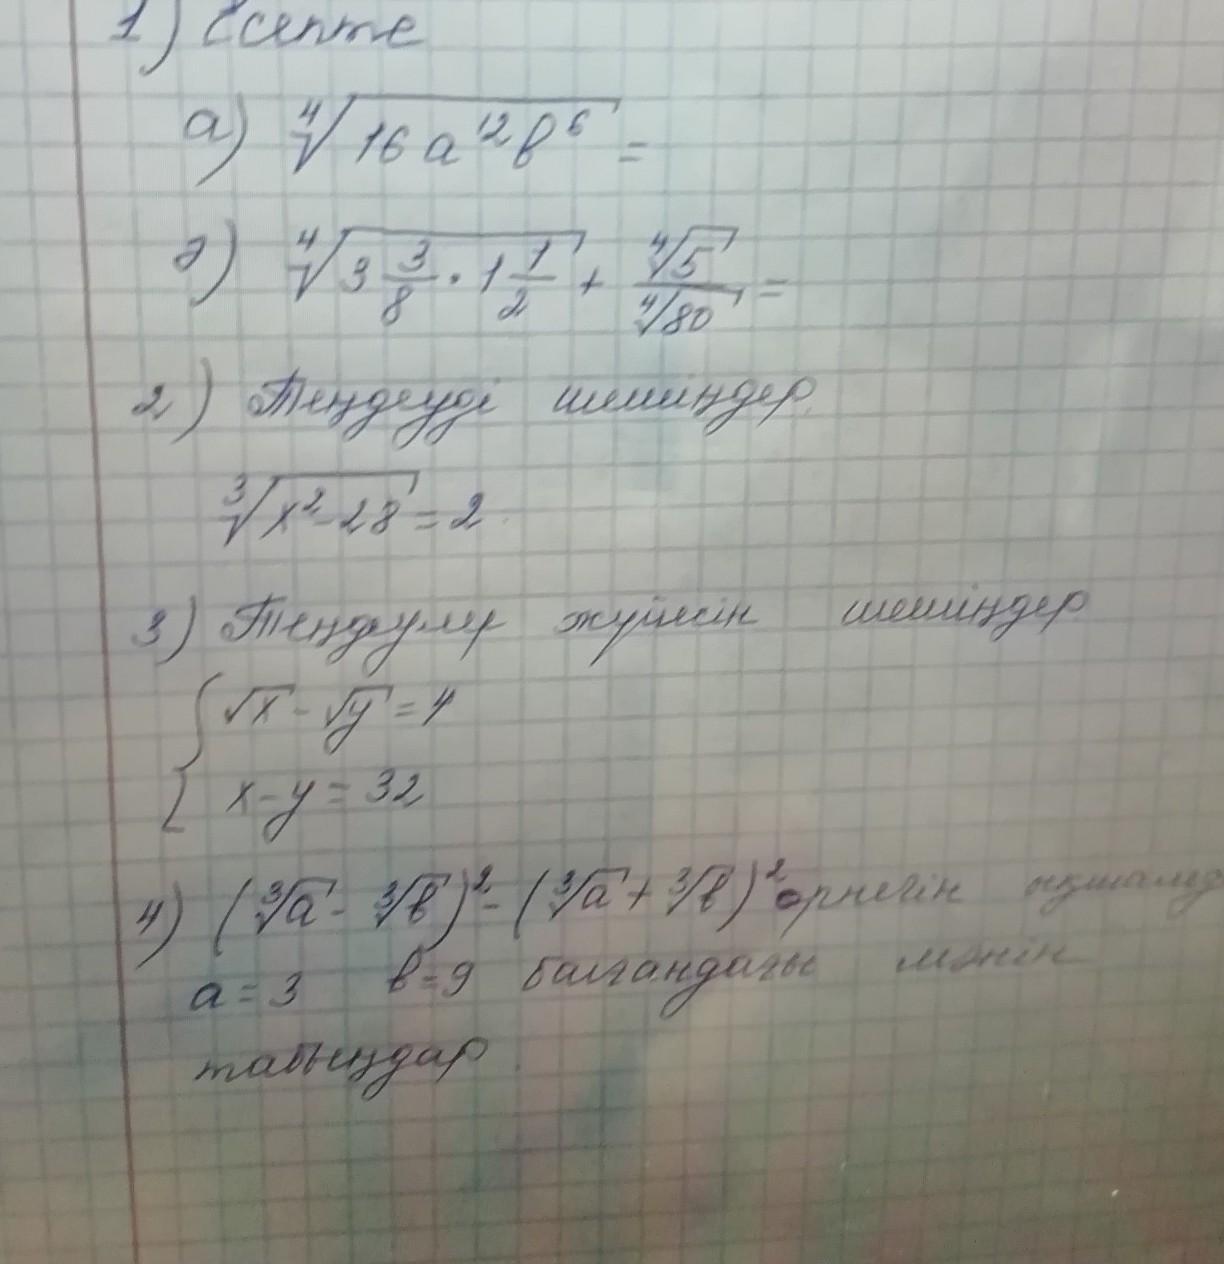 1) Есепте
а) ∜(16a¹²b⁶) =
ә) ∜(3 3/8 · 1 1/2) + ∜5/∜80 =
2) Теңдеуді шешіңдер
∛(x²-28) = 2
3) Теңдеулер жүйесін шешіңдер
{ √x - √y = 4
x - y = 32
4) (∛a - ∛b)² - (∛a + ∛b)² өрнегін ықшамда
a = 3 b = 9 болғандағы мәнін
табыңдар